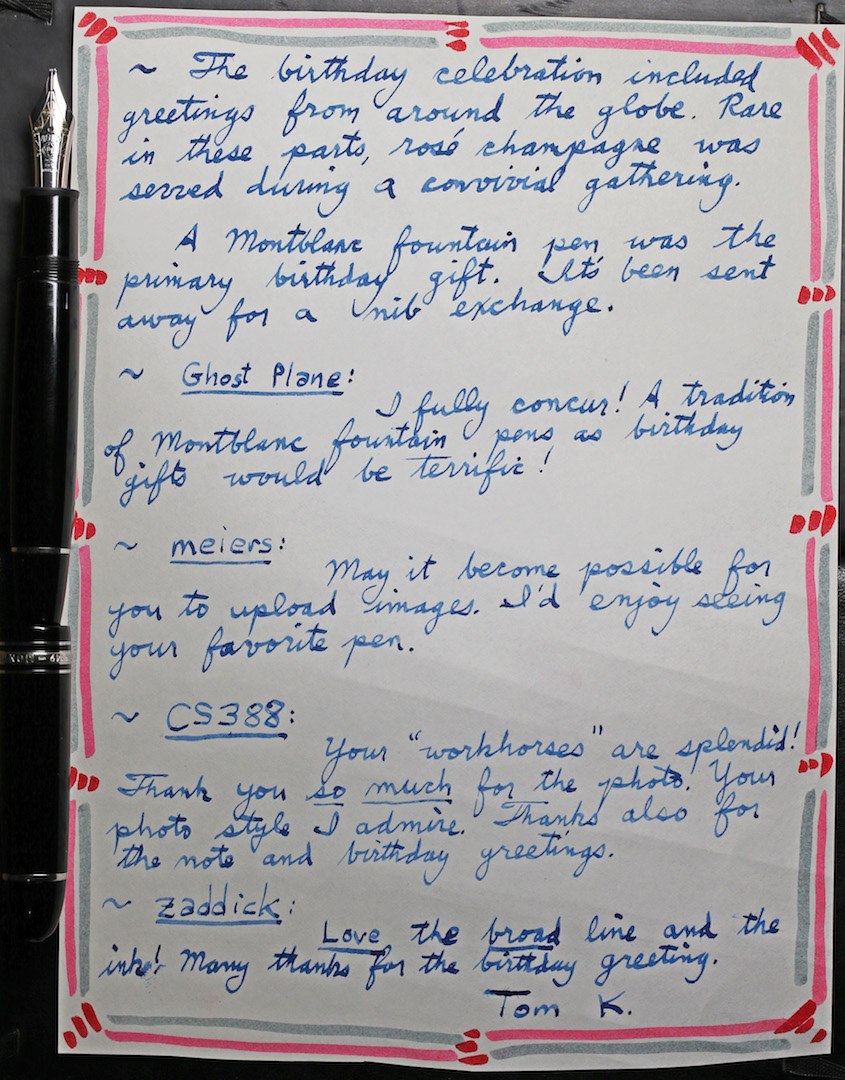 ~ The birthday celebration included
greetings from around the globe. Rare
in these parts, rosé champagne was
served during a convivial gathering.
A Montblanc fountain pen was the
primary birthday gift. It's been sent
away for a nib exchange.
~ Ghost Plane:
I fully concur! A tradition
of Montblanc fountain pens as birthday
gifts would be terrific!
~ meiers:
May it become possible for
you to upload images. I'd enjoy seeing
your favorite pen.
~ CS388:
Your "workhorses" are splendid!
Thank you so much for the photo! Your
photo style I admire. Thanks also for
the note and birthday greetings.
~ zaddick:
Love the broad line and the
ink! Many thanks for the birthday greeting.
Tom K.